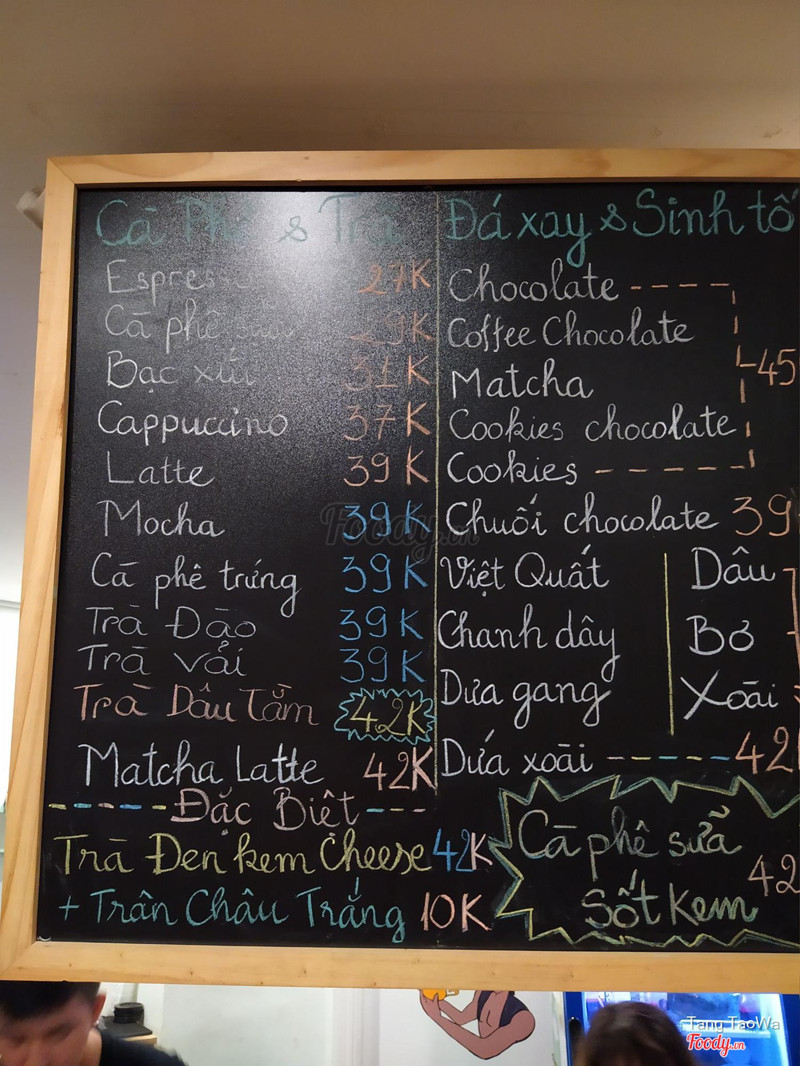 Cà Phê & Trà
Espresso 27K
Cà phê sữa 29K
Bạc xỉu 31K
Cappuccino 37K
Latte 39K
Mocha 39K
Cà phê trứng 39K
Trà Đào 39K
Trà Vải 39K
Trà Dâu Tằm 42K
Matcha Latte 42K
Đặc Biệt
Trà Đen kem Cheese 42K
+ Trân Châu Trắng 10K
Đá xay & Sinh tố
Chocolate
Coffee Chocolate
Matcha 45
Cookies chocolate
Cookies
Chuối chocolate 39
Việt Quất Dâu
Chanh dây Bơ
Dưa gang Xoài
Dứa xoài 42
Cà phê sữa
Sốt Kem 42
Foody.vn
Tang TaoWa
Foody.vn